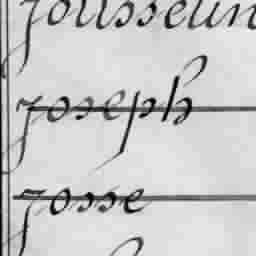 Jousselin
Joseph
Josse